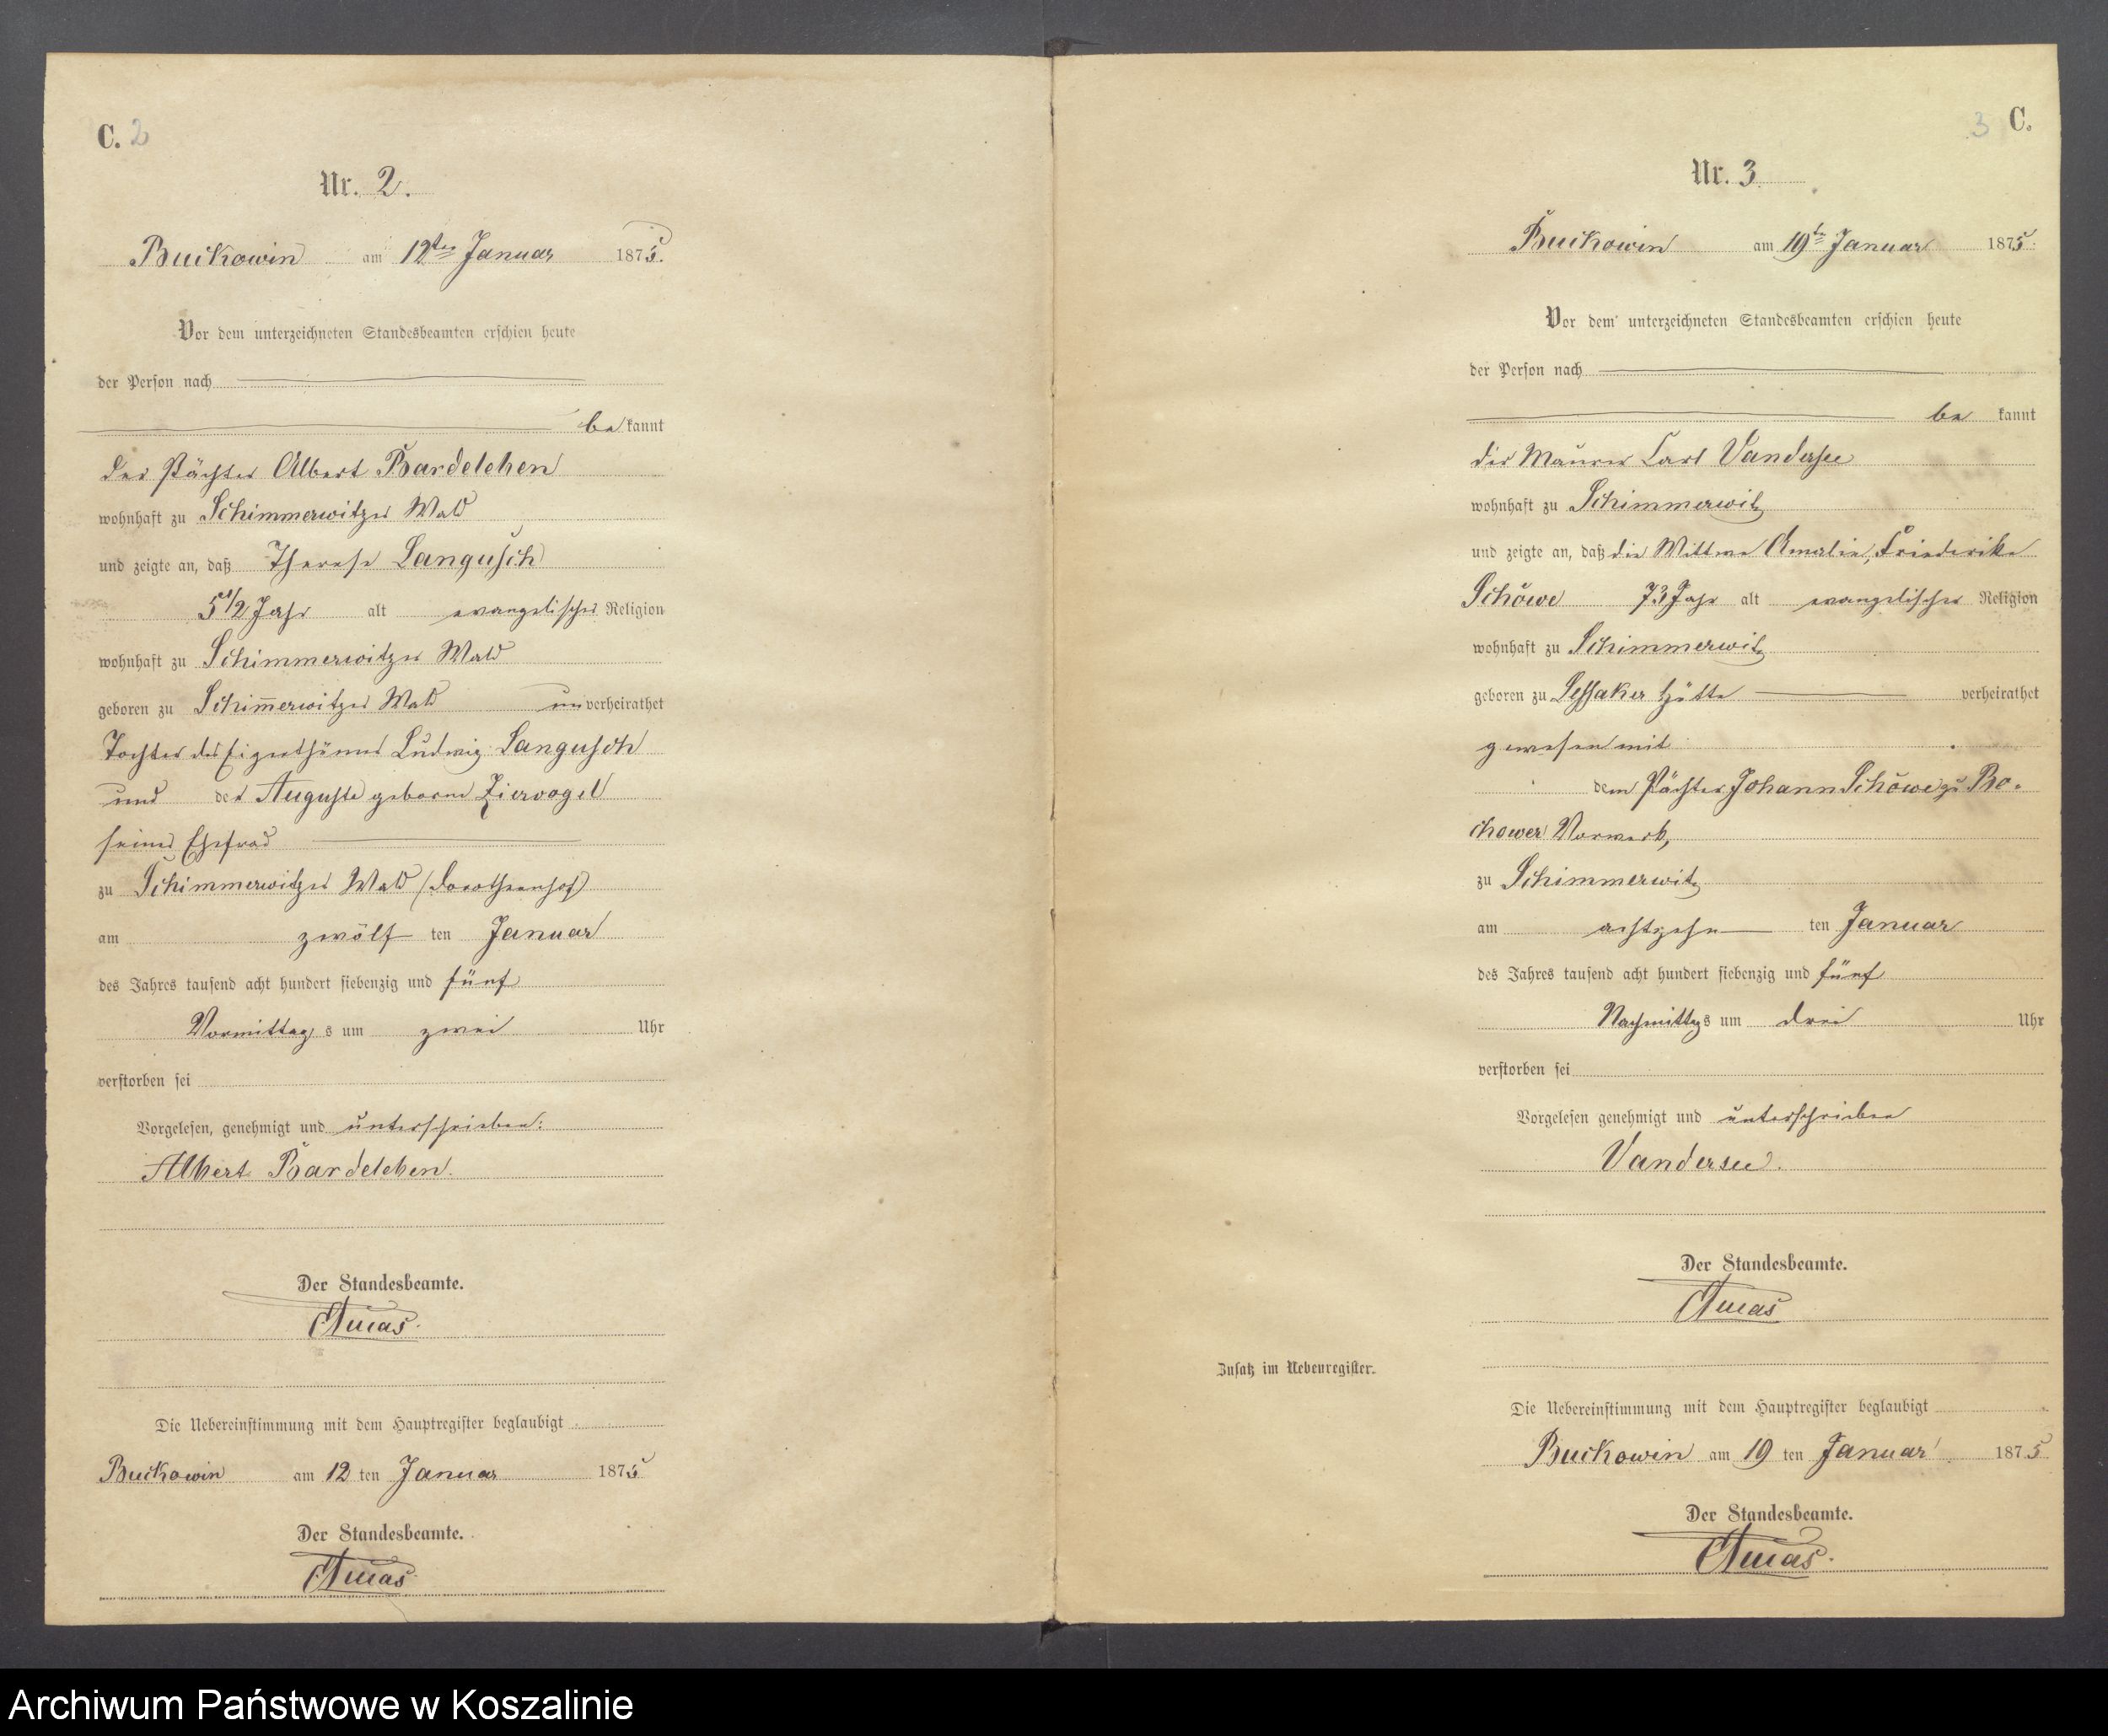 C. 2
Nr. 2.
Buckowin am 12ten Januar 1875.
Vor dem unterzeichneten Standesbeamten erschien heute
der Person nach
be kannt
der Pächter Albert Bardeleben
wohnhaft zu Schimmerwitzer Wald
und zeigte an, daß Therese Langusch
5 1/2 Jahr alt evangelischer Religion
wohnhaft zu Schimmerwitzer Wald
geboren zu Schim̅erwitzer Wald unverheirathet
Tochter des Eigenthümer Ludwig Langusch
und der Auguste geborne Ziervogel
seiner Ehefrau
zu Schimmerwitzer Wald (Dorotheenhof)
am zwölf ten Januar
des Jahres tausend acht hundert siebenzig und fünf
Vormittags um zwei Uhr
verstorben sei
Vorgelesen, genehmigt und unterschrieben:
Albert Bardeleben.
Der Standesbeamte.
Die Uebereinstimmung mit dem Hauptregister beglaubigt
Buckowin am 12 ten Januar 1875
Der Standesbeamte.
3 C.
Nr. 3
Buckowin am 19ten Januar 1875.
Vor dem unterzeichneten Standesbeamten erschien heute
der Person nach
be kannt
der Maurer Carl Vandersee
wohnhaft zu Schimmerwitz
und zeigte an, daß die Wittwe Amalie, Friederike
Schöwe 73 Jahr alt evangelischer Religion
wohnhaft zu Schimmerwitz
geboren zu Lessaker Hütte verheirathet
gewesen mit
dem Pächter Johann Schöwe zu Bo-
chower Vorwerk,
zu Schimmerwitz
am achtzehn ten Januar
des Jahres tausend acht hundert siebenzig und fünf
Nachmittags um drei Uhr
verstorben sei
Vorgelesen genehmigt und unterschrieben
Vandersee.
Der Standesbeamte.
Zusatz im Nebenregister.
Die Uebereinstimmung mit dem Hauptregister beglaubigt
Buckowin am 19 ten Januar 1875
Der Standesbeamte.
Archiwum Państwowe w Koszalinie